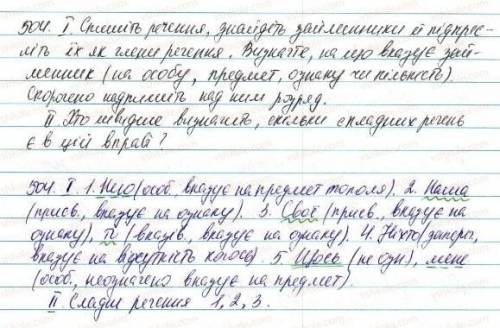 504. I. Спишіть речення, знайдіть займенники й підкрес-
літь їх як члени речення. Визначте, на що вказує зай-
менник (на особу, предмет, ознаку чи кількість).
Скорочено надпишіть над ним розряд.
II. Хто швидше визначить, скільки складних речень
є в цій вправі?
504. I. 1. Нею (особ., вказує на предмет тополя). 2. Наша
(присв., вказує на ознаку). 3. Свої (присв., вказує на
ознаку), ті (вказів., вказує на ознаку). 4. Ніхто (запереч.,
вказує на відсутність когось). 5 Щось (не озн), мене
(особ., неозначено вказує на предмет).
II. Сладні речення 1, 2, 3.